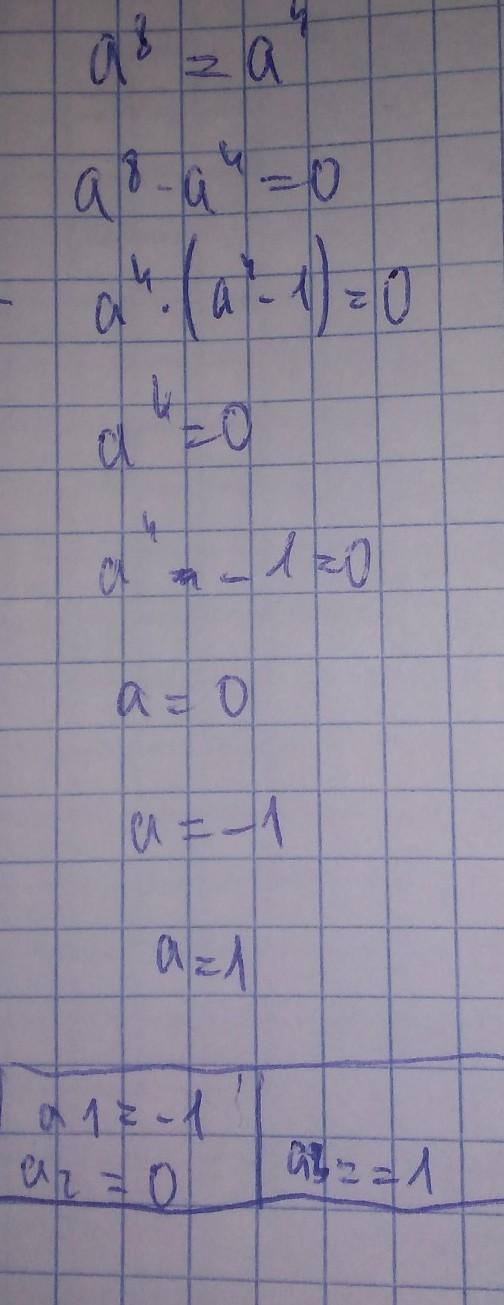 a⁸ = a⁴
a⁸ - a⁴ = 0
a⁴ · (a⁴ - 1) = 0
a⁴ = 0
a⁴ - 1 = 0
a = 0
a = -1
a = 1
a1 = -1
a2 = 0
a3 = = 1